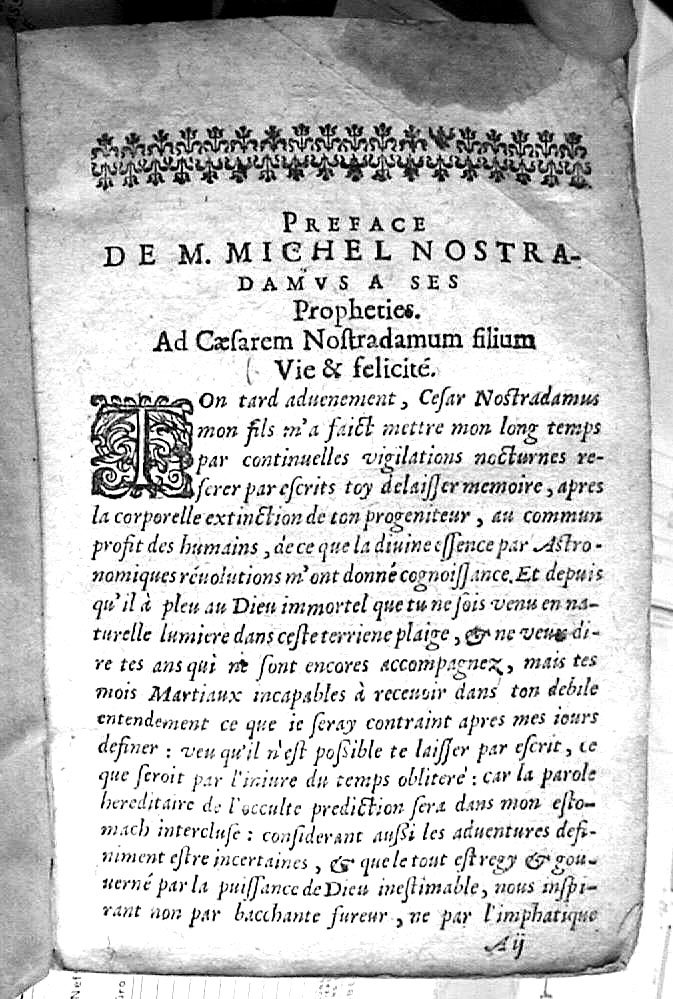 PREFACE
DE M. MICHEL NOSTRA-
DAMVS A SES
Propheties.
Ad Cæsarem Nostradamum filium
Vie & felicité.
TOn tard aduenement, Cesar Nostradamus
mon fils m'a faict mettre mon long temps
par continuelles vigilations nocturnes re-
ſerer par eſcrits toy delaiſſer memoire, apres
la corporelle extinction de ton progeniteur, au commun
profit des humains, de ce que la diuine eſſence par Astro-
nomiques réuolutions m'ont donné cognoiſſance. Et depuis
qu'il à pleu au Dieu immortel que tu ne ſois venu en na-
turelle lumiere dans ceſte terriene plaige, & ne veux di-
re tes ans qui ne ſont encores accompagnez, mais tes
mois Martiaux incapables à receuoir dans ton debile
entendement ce que ie ſeray contraint apres mes iours
definer : veu qu'il n'eſt poſſible te laiſſer par eſcrit, ce
que ſeroit par l'iniure du temps obliteré : car la parole
hereditaire de l'occulte prediction ſera dans mon eſto-
mach intercluſe : conſiderant auſſi les aduentures defi-
niment eſtre incertaines, & que le tout eſt regy & gou-
uerné par la puiſſance de Dieu ineſtimable, nous inſpi-
rant non par bacchante fureur, ne par l'imphatique
Aij